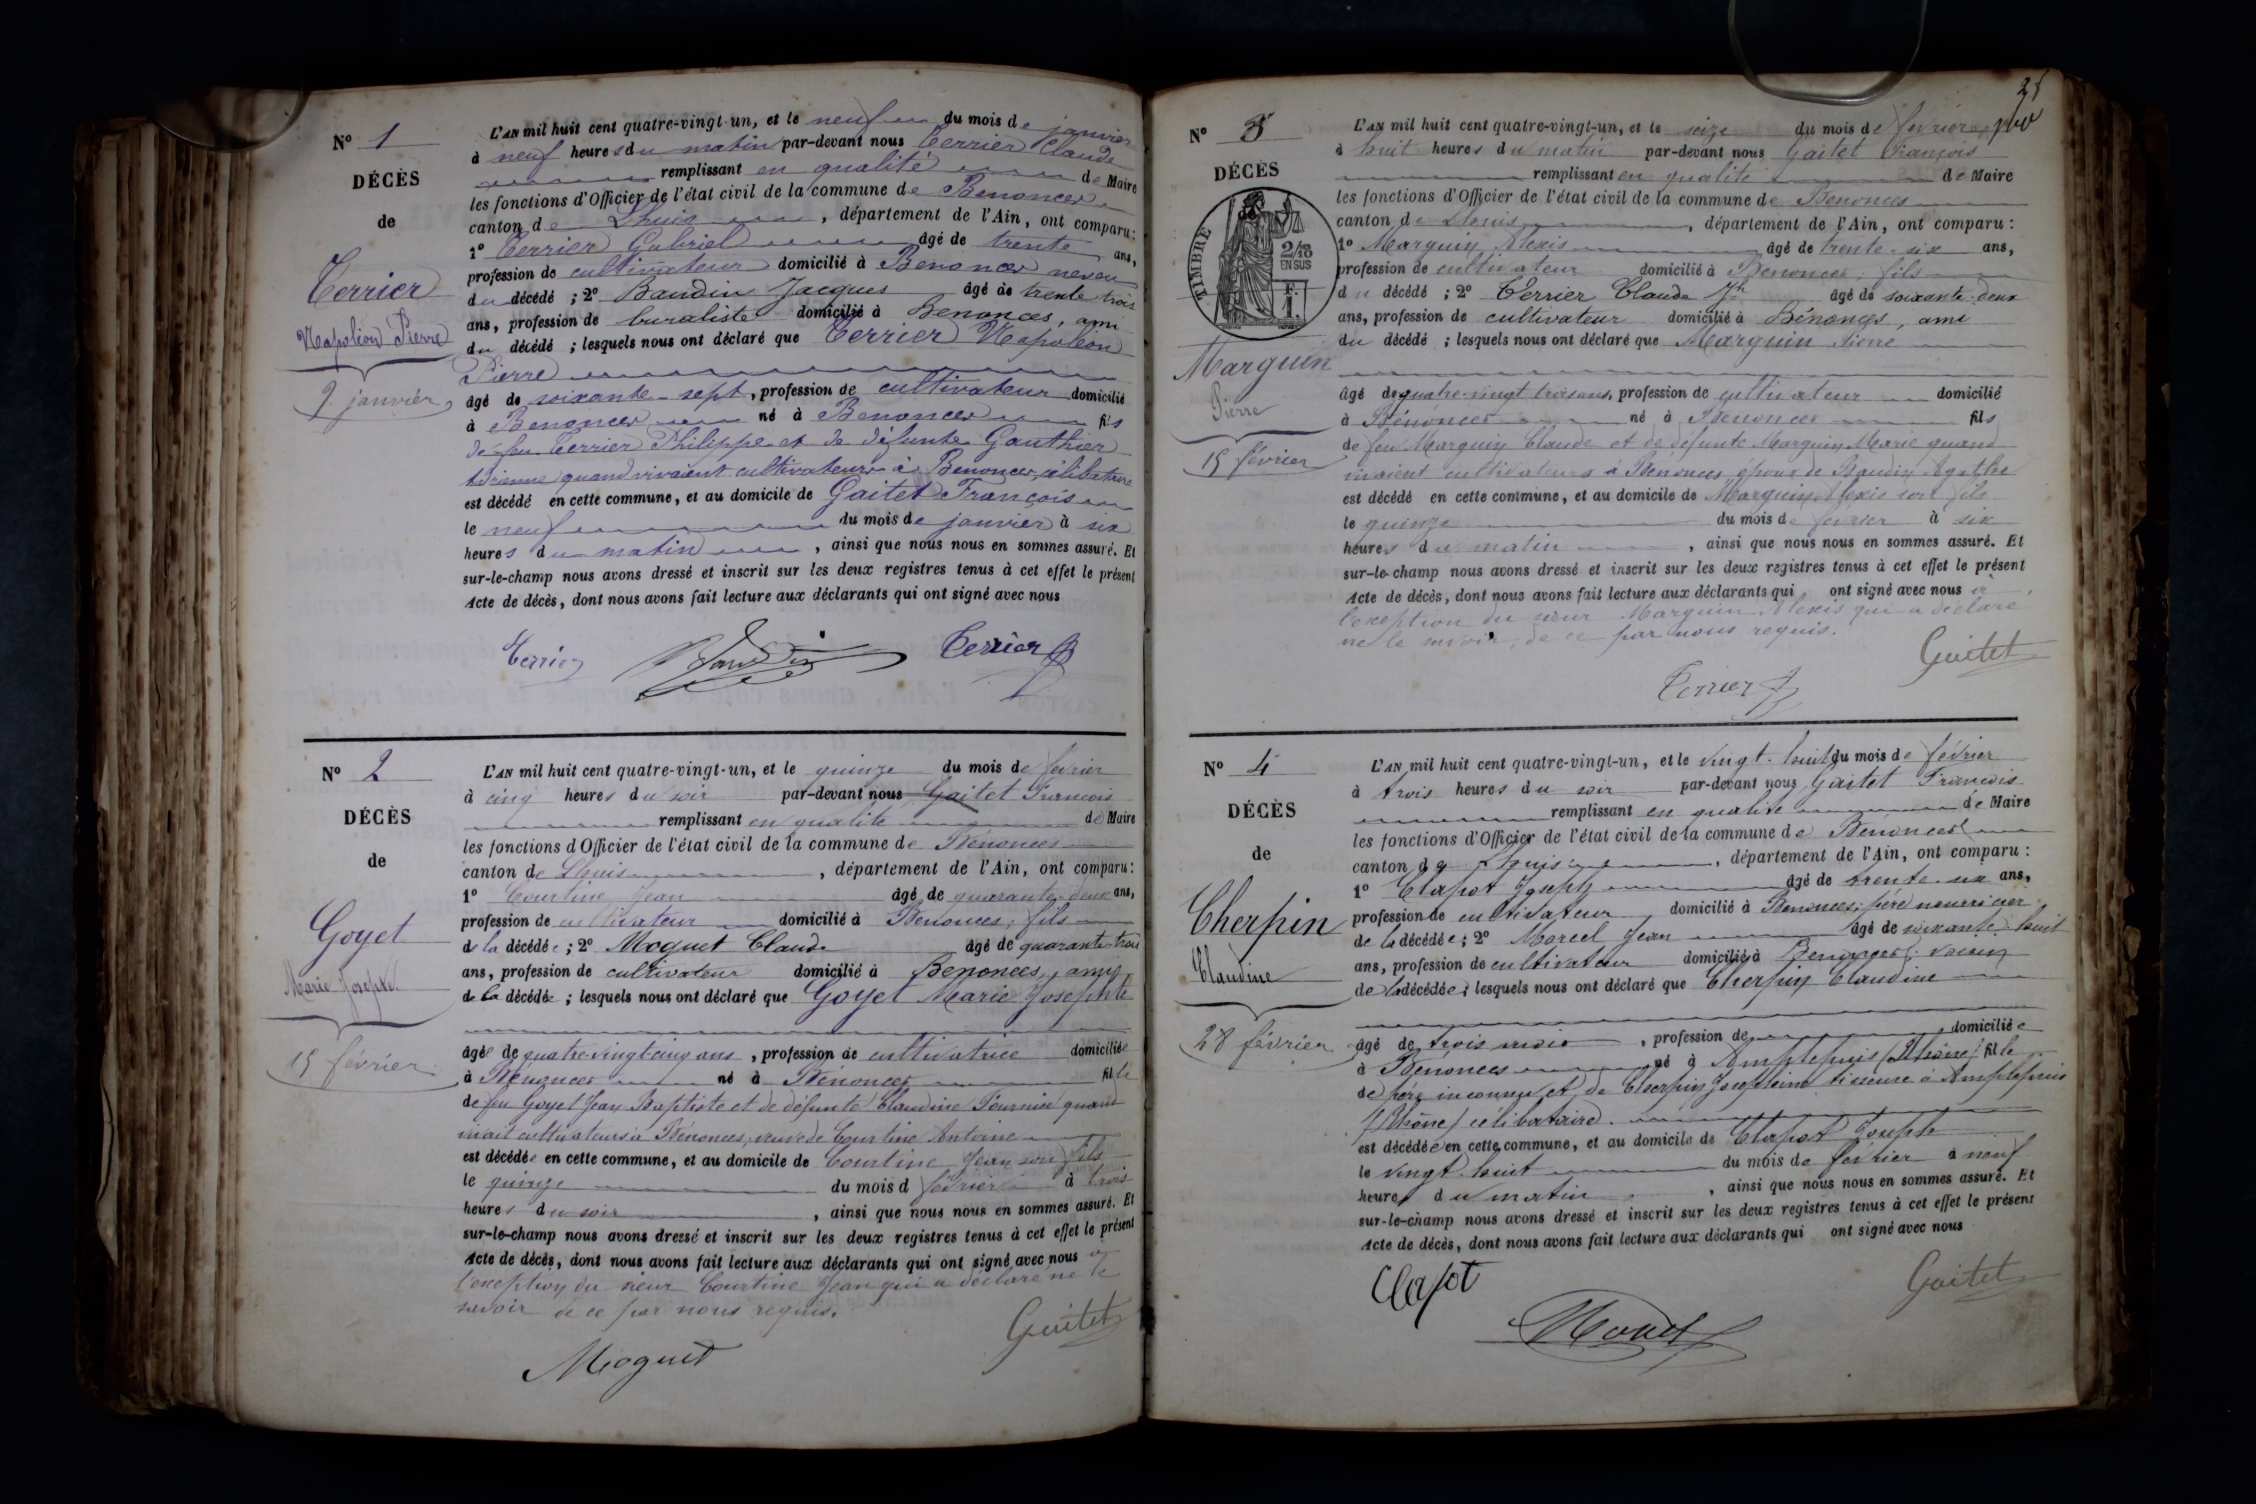 N° 1
DÉCÈS
de
Terrier
Napoléon Pierre
9 janvier
L'AN mil huit cent quatre-vingt-un, et le neuf du mois de janvier
à neuf heures du matin par-devant nous Terrier Claude
remplissant en qualité de Maire
les fonctions d'Officier de l'état civil de la commune de Benonces
canton de Lhuis, département de l'Ain, ont comparu:
1° Terrier Gabriel âgé de trente ans,
profession de cultivateur domicilié à Benonces neveu
du décédé; 2° Baudin Jacques âgé de trente trois
ans, profession de buraliste domicilié à Benonces, ami
du décédé; lesquels nous ont déclaré que Terrier Napoléon
Pierre
âgé de soixante-sept, profession de cultivateur domicilié
à Benonces né à Benonces fils
de feu Terrier Philippe et de défunte Gauthier
quand vivaient cultivateurs à Benonces, célibataire
est décédé en cette commune, et au domicile de Gaitet François
le neuf du mois de janvier à six
heures du matin, ainsi que nous nous en sommes assuré. Et
sur-le-champ nous avons dressé et inscrit sur les deux registres tenus à cet effet le présent
Acte de décès, dont nous avons fait lecture aux déclarants qui ont signé avec nous
Terrier Baudin Terrier
N° 2
DÉCÈS
de
Goyet
Marie Josephte
15 février
L'AN mil huit cent quatre-vingt-un, et le quinze du mois de février
à cinq heures du soir par-devant nous Gaitet François
remplissant en qualité de Maire
les fonctions d'Officier de l'état civil de la commune de Bénonces
canton de Lhuis, département de l'Ain, ont comparu:
1° Courtine Jean âgé de quarante-deux ans,
profession de cultivateur domicilié à Benonces, fils
de la décédée; 2° Moguet Claude âgé de quarante trois
ans, profession de cultivateur domicilié à Benonces, ami
de la décédée; lesquels nous ont déclaré que Goyet Marie Josephte
âgée de quatre vingt cinq ans, profession de cultivatrice domiciliée
à Bénonces né à Bénonces fille
de feu Goyet Jean Baptiste et de défunte Claudine quand
vivait cultivateurs à Bénonces, veuve de Courtine Antoine
est décédée en cette commune, et au domicile de Courtine Jean son fils
le quinze du mois d février à trois
heures du soir, ainsi que nous nous en sommes assuré. Et
sur-le-champ nous avons dressé et inscrit sur les deux registres tenus à cet effet le présent
Acte de décès, dont nous avons fait lecture aux déclarants qui ont signé avec nous à
l'exception du sieur Courtine Jean qui a déclaré ne le
savoir de ce par nous requis.
Moguet Gaitet
25
N° 3
DÉCÈS
TIMBRE
2/10
EN SUS
F.
1.
Marguin
Pierre
15 février
L'AN mil huit cent quatre-vingt-un, et le seize du mois de février
à huit heures du matin par-devant nous Gaitet François
remplissant en qualité de Maire
les fonctions d'Officier de l'état civil de la commune de Benonces
canton de Lhuis, département de l'Ain, ont comparu:
1° Marguin Alexis âgé de trente-six ans,
profession de cultivateur domicilié à Benonces, fils
du décédé; 2° Terrier Claude Jh âgé de soixante-deux
ans, profession de cultivateur domicilié à Bénonces, ami
du décédé; lesquels nous ont déclaré que Marguin Pierre
âgé de quatre-vingt trois ans, profession de cultivateur domicilié
à Bénonces né à Benonces fils
de feu Marguin Claude et de défunte Marguin Marie quand
vivaient cultivateurs à Bénonces, époux de Baudin Agathe
est décédé en cette commune, et au domicile de Marguin Alexis son fils
le quinze du mois de février à six
heures du matin, ainsi que nous nous en sommes assuré. Et
sur-le-champ nous avons dressé et inscrit sur les deux registres tenus à cet effet le présent
Acte de décès, dont nous avons fait lecture aux déclarants qui ont signé avec nous à
l'exception du sieur Marguin Alexis qui a déclaré
ne le savoir, de ce par nous requis.
Gaitet
Terrier
N° 4
DÉCÈS
de
Cherpin
Claudine
28 février
L'AN mil huit cent quatre-vingt-un, et le vingt-huit du mois de février
à trois heures du soir par-devant nous Gaitet François
remplissant en qualité de Maire
les fonctions d'Officier de l'état civil de la commune de Bénonces
canton de Lhuis, département de l'Ain, ont comparu:
1° Clapot Joseph âgé de trente-six ans,
profession de cultivateur domicilié à Benonces, père nourricier
de la décédée; 2° Morcel Jean âgé de soixante-huit
ans, profession de cultivateur domicilié à Benonces, voisin
de la décédée; lesquels nous ont déclaré que Cherpin Claudine
âgé de trois mois, profession de domiciliée
à Bénonces né à Amplepuis (Rhône) fille
de père inconnu et de Cherpin Josephine tisseuse à Amplepuis
(Rhône) célibataire.
est décédée en cette commune, et au domicile de Clapot Joseph
le vingt-huit du mois de février à neuf
heures du matin, ainsi que nous nous en sommes assuré. Et
sur-le-champ nous avons dressé et inscrit sur les deux registres tenus à cet effet le présent
Acte de décès, dont nous avons fait lecture aux déclarants qui ont signé avec nous
Clapot Gaitet